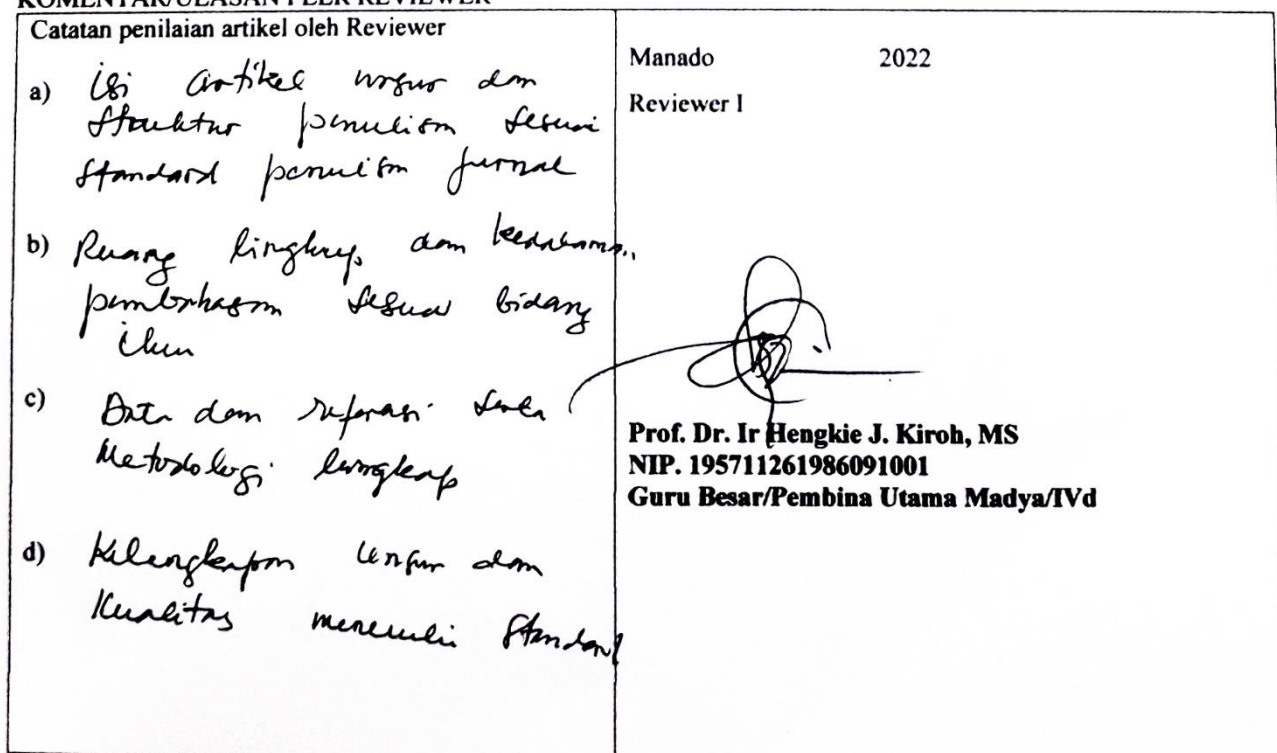 KOMENTAR/ULASAN PEER REVIEWER
Catatan penilaian artikel oleh Reviewer
a) isi artikel unsur dan
struktur penulisan sesuai
standard penulisan jurnal
b) Ruang lingkup dan kedalaman
pembahasan sesuai bidang
ilmu
c) Data dan referensi serta
Metodologi lengkap
d) Kelengkapan unsur dan
Kualitas memenuhi standard
Manado 2022
Reviewer I
Prof. Dr. Ir Hengkie J. Kiroh, MS
NIP. 195711261986091001
Guru Besar/Pembina Utama Madya/IVd